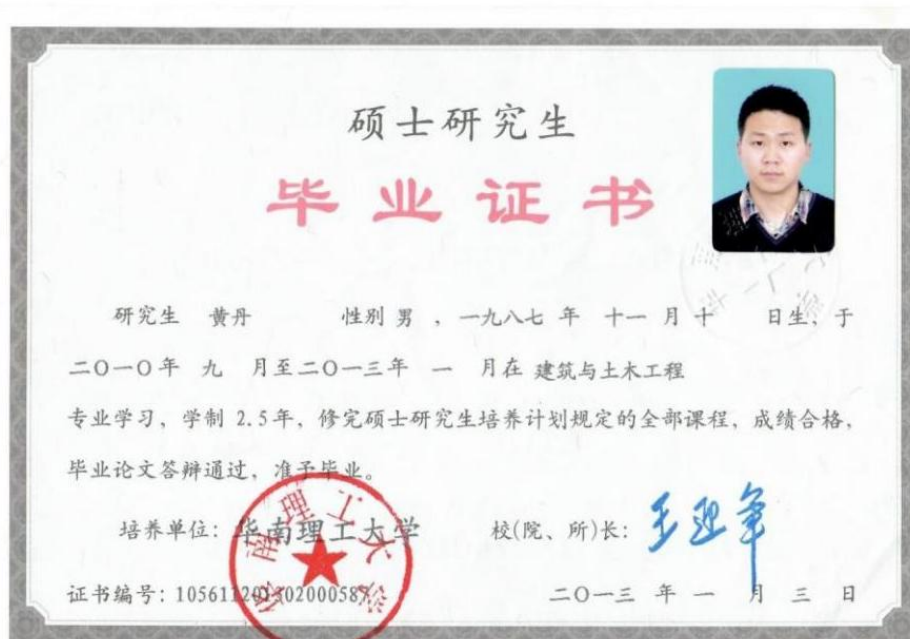 硕士研究生
毕业证书
研究生 黄丹 性别 男 ，一九八七 年 十一 月 十 日生，于
二〇一〇年 九 月至二〇一三年 一 月在 建筑与土木工程
专业学习，学制 2.5年，修完硕士研究生培养计划规定的全部课程，成绩合格，
毕业论文答辩通过，准予毕业。
培养单位：华南理工大学 校(院、所)长：王迎军
华南理工大学
证书编号：二〇一三 年 一 月 三 日